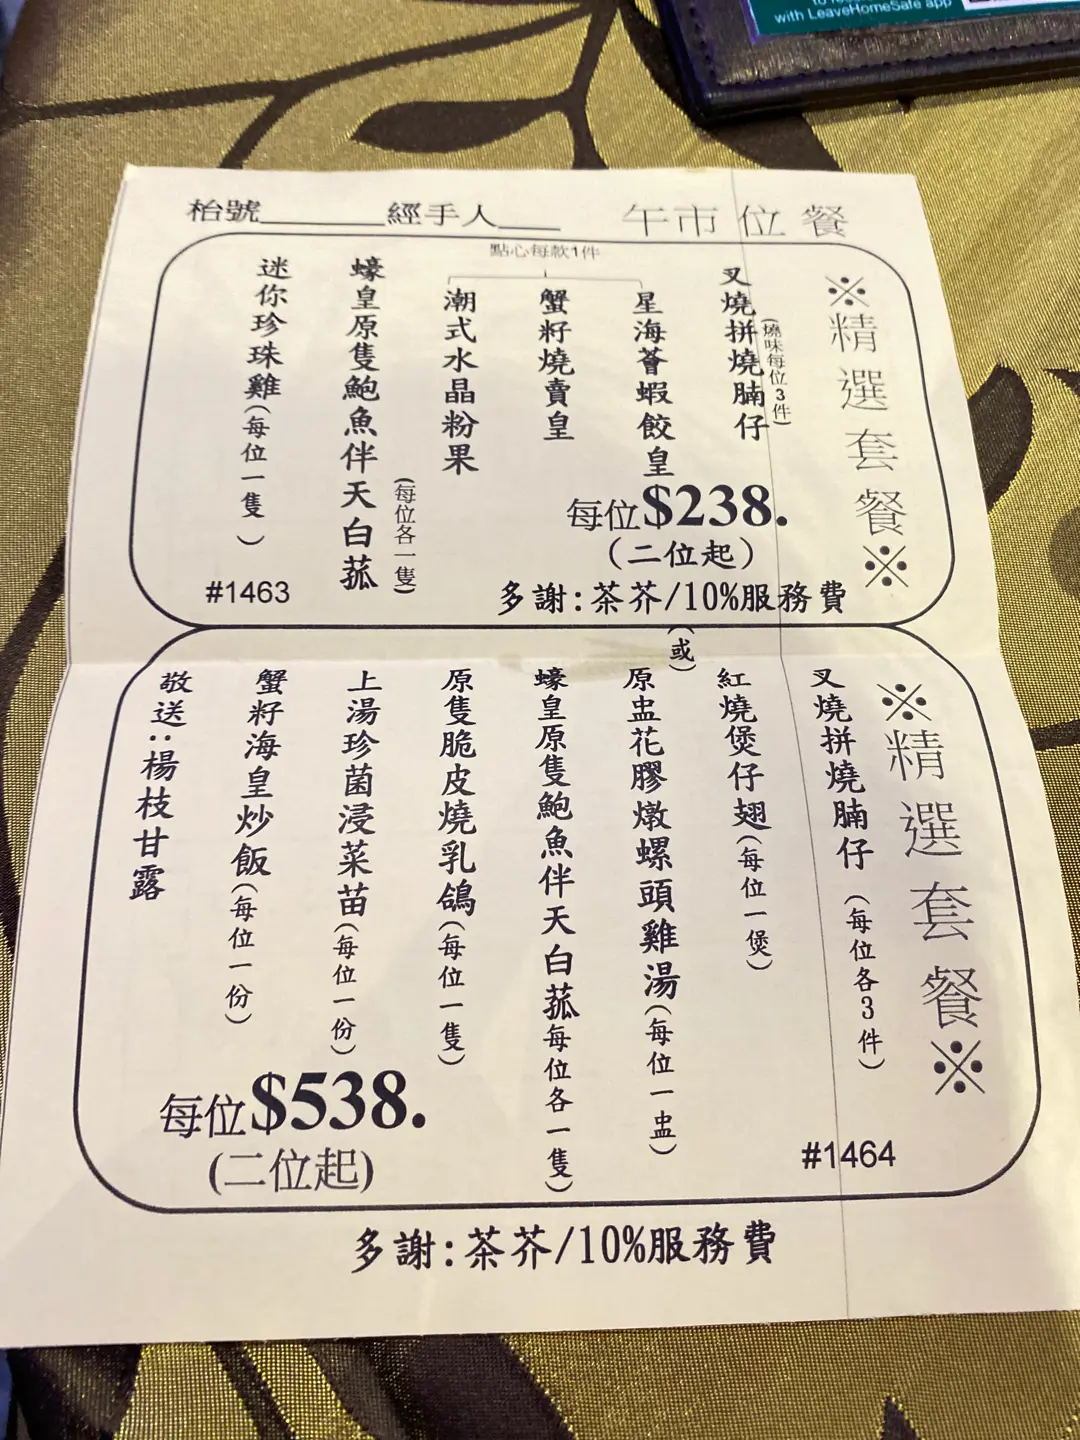 with LeaveHomeSafe app
枱號______經手人___
午市位餐
※精選套餐※
叉燒拼燒腩仔
(燒味每位3件)
點心每款1件
星海薈蝦餃皇
蟹籽燒賣皇
潮式水晶粉果
蠔皇原隻鮑魚伴天白菰
(每位各一隻)
迷你珍珠雞(每位一隻)
每位$238.
(二位起)
#1463
多謝:茶芥/10%服務費
※精選套餐※
叉燒拼燒腩仔(每位各3件)
紅燒煲仔翅(每位一煲)
(或)
原盅花膠燉螺頭雞湯(每位一盅)
蠔皇原隻鮑魚伴天白菰(每位各一隻)
原隻脆皮燒乳鴿(每位一隻)
上湯珍菌浸菜苗(每位一份)
蟹籽海皇炒飯(每位一份)
敬送:楊枝甘露
每位$538.
(二位起)
#1464
多謝:茶芥/10%服務費